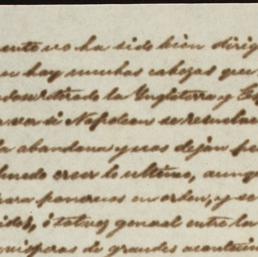 ento no ha sido bien dirig
hay muchas cabezas que
la Ynglaterra y Es
si Napoleon se resuelv
la abandona y nos dejan
puedo creer lo ultimo, aunq
para ponernos en orden, y se
ó talvez general entre la
visperas de grandes acontecim